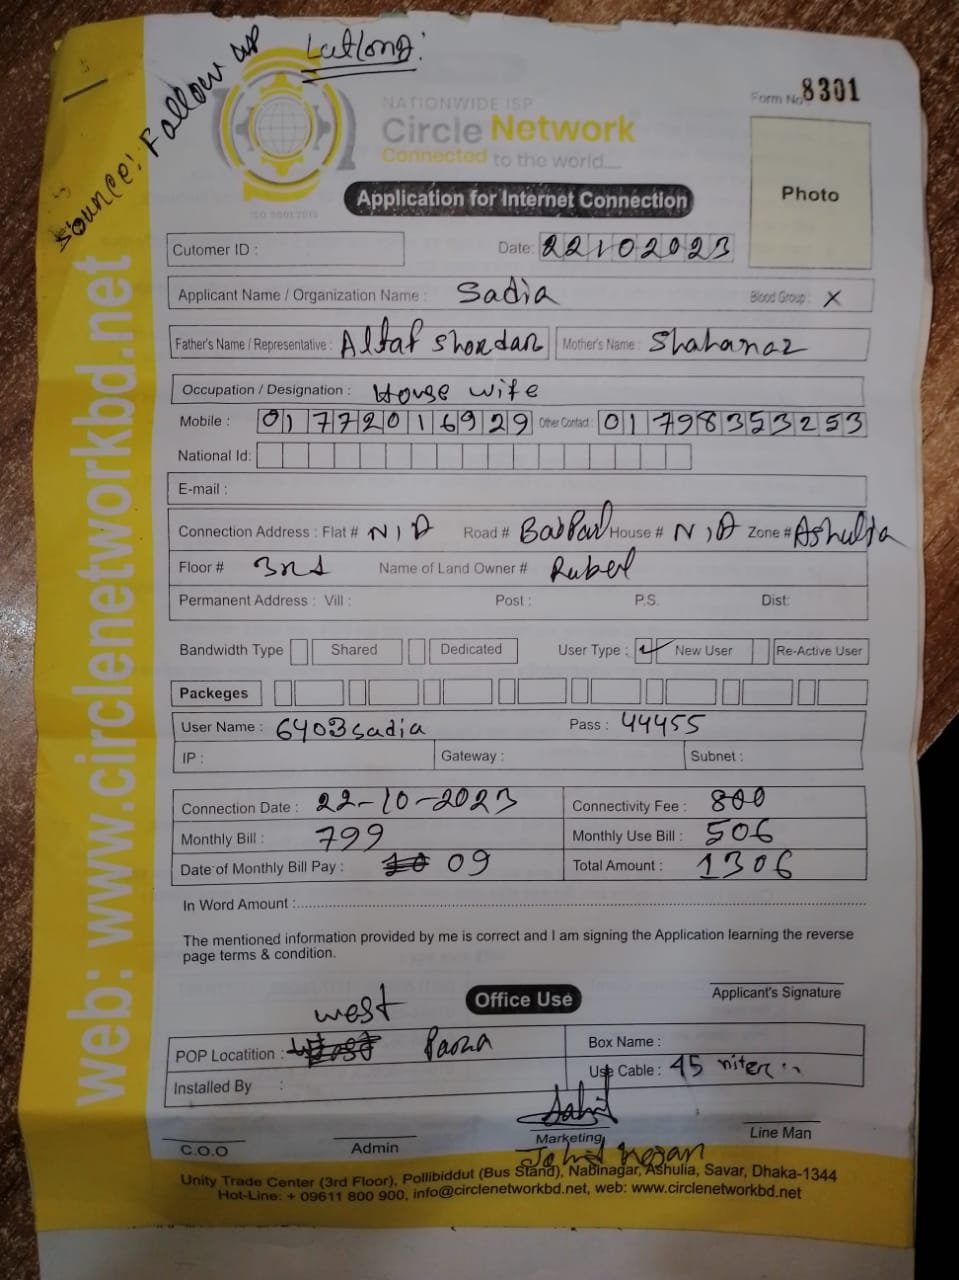 Source: Follow up
Latlong:
NATIONWIDE ISP
Circle Network
Connected to the world....
ISO 9001:2015
Form No 8301
Application for Internet Connection
Photo
Cutomer ID :
Date: 22102023
Applicant Name / Organization Name : Sadia
Blood Group : X
Father's Name / Representative : Altaf Shordar
Mother's Name : Shahanaz
Occupation / Designation : House wife
Mobile : 01772016929 Other Contact : 01798353253
National Id:
E-mail :
Connection Address : Flat # N/A Road # House # N/A Zone # Ashulia
Floor # 3rd Name of Land Owner # Rubel
Permanent Address : Vill : Post : P.S. Dist:
Bandwidth Type Shared Dedicated User Type : ✓ New User Re-Active User
Packeges
User Name : 6403sadia Pass : 44455
IP : Gateway : Subnet :
Connection Date : 22-10-2023 Connectivity Fee : 800
Monthly Bill : 799 Monthly Use Bill : 506
Date of Monthly Bill Pay : 09 Total Amount : 1306
In Word Amount :
The mentioned information provided by me is correct and I am signing the Application learning the reverse
page terms & condition.
Applicant's Signature
Office Use
west
POP Locatition : Box Name :
Installed By : Use Cable : 45 miter
C.O.O Admin Marketing Line Man
Unity Trade Center (3rd Floor), Pollibiddut (Bus Stand), Nabinagar, Ashulia, Savar, Dhaka-1344
Hot-Line: + 09611 800 900, info@circlenetworkbd.net, web: www.circlenetworkbd.net
web: www.circlenetworkbd.net